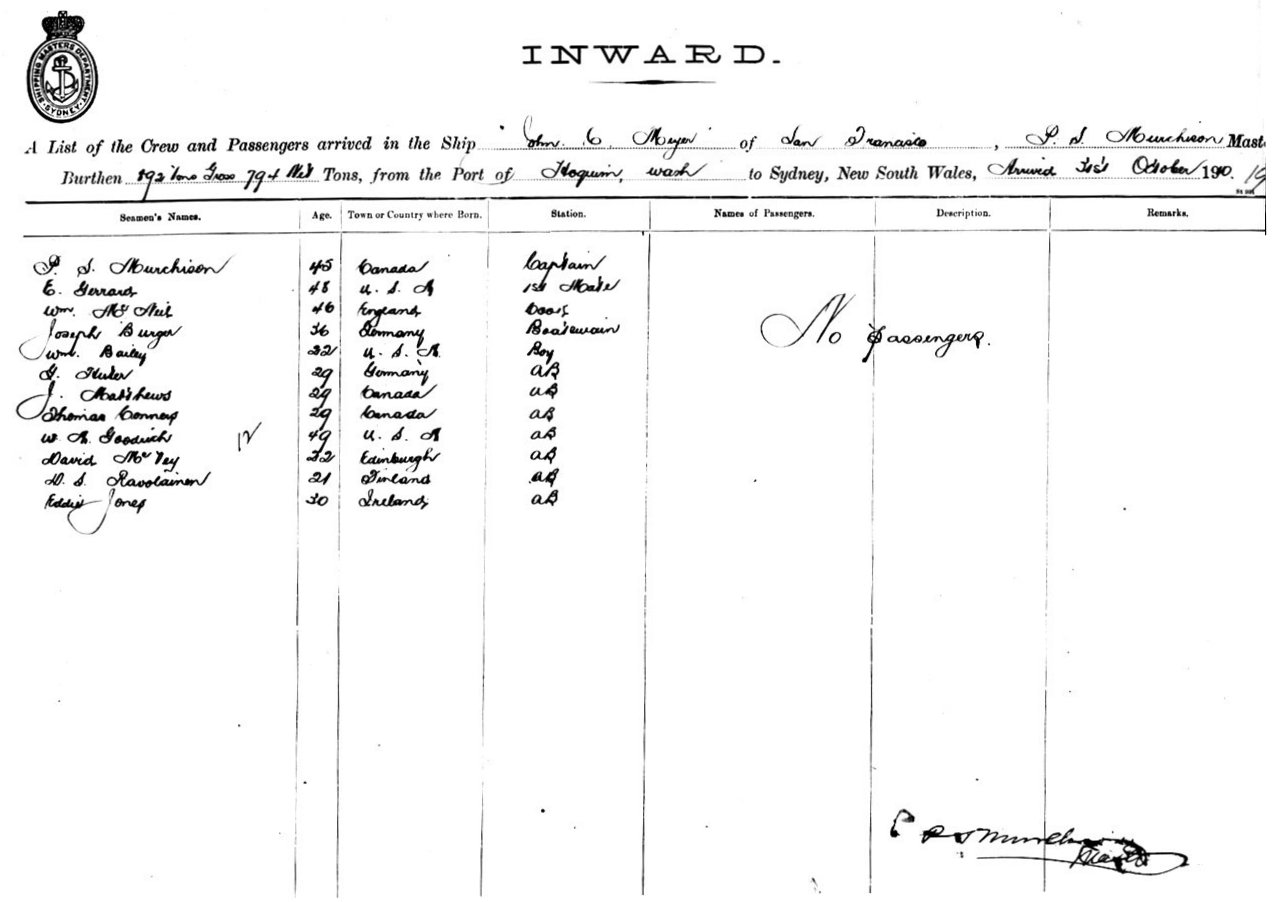 SHIPPING MASTERS DEPARTMENT SYDNEY
INWARD.
A List of the Crew and Passengers arrived in the Ship "John. C. Meyer" of San Francisco, P. S. Murchison Mast
Burthen 892 Tons Gross 794 Net Tons, from the Port of Hoquim, Wash to Sydney, New South Wales, Arrived October 190.
Seamen's Names. Age. Town or Country where Born. Station. Names of Passengers. Description. Remarks.
P. S. Murchison 45 Canada Captain
E. Gerrard 48 U. S. A 1st Mate
Wm. Mc Neil 46 England Cook
Joseph Burger 36 Germany Boatswain
Wm. Bailey 22 U. S. A. Boy
G. 29 Germany AB
J. Matthews 29 Canada AB
Thomas Conners 29 Canada AB
W. A. Goodrich 12 49 U. S. A AB
David Mc Vey 22 Edinburgh AB
D. S. Ravolainen 21 Finland AB
Eddie Jones 30 Ireland AB
No passengers.
P S Murchison
Master